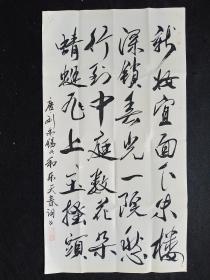 新妆宜面下朱楼
深锁春光一院愁
行到中庭数花朵
蜻蜓飞上玉搔头
唐刘禹锡《和乐天春词》